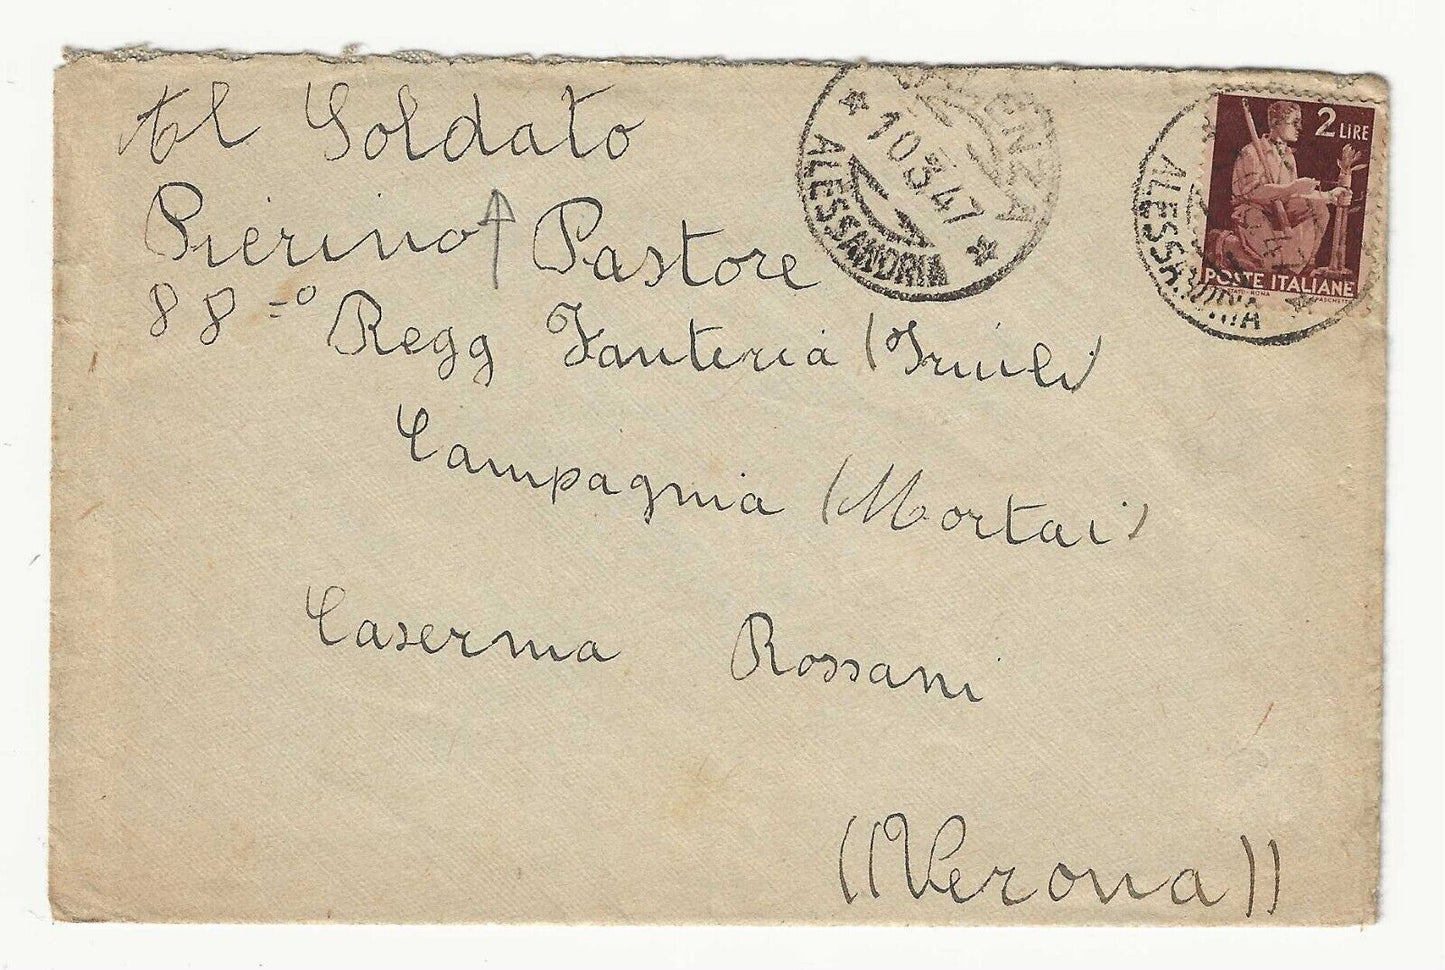 Al Soldato
Pierino Pastore
88=º Regg Fanteria (Friuli)
Campagnia (Mortai)
Caserma Rossani
((Verona))
10.3.47
ALESSANDRIA
2 LIRE
POSTE ITALIANE
ALESSANDRIA